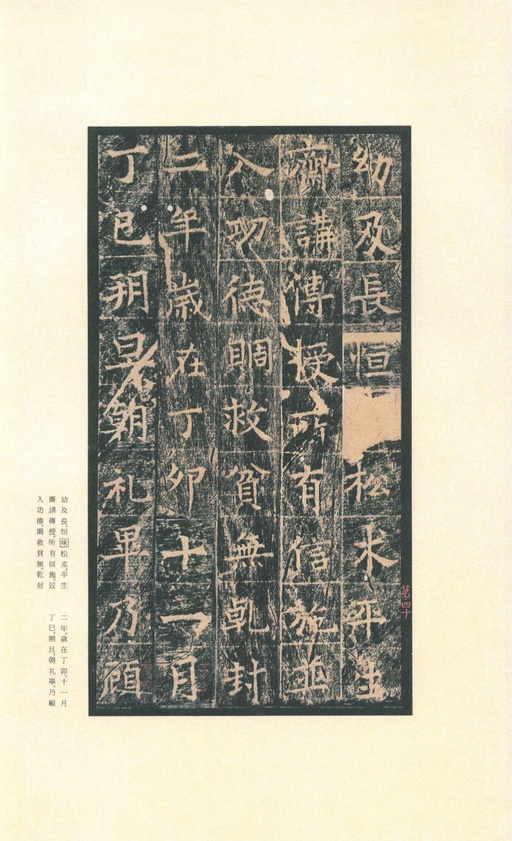 幼及長恒松朮平生
齋講傳授所有信施並
入功德賙救貧無乾封
二年歲在丁卯十一月
丁巳朔旦朝礼畢乃顧
第四十
幼及長恒松朮平生
齋講傳授所有信施竝
入功德賙救貧無乾封
二年歲在丁卯十一月
丁巳朔旦朝礼畢乃顧